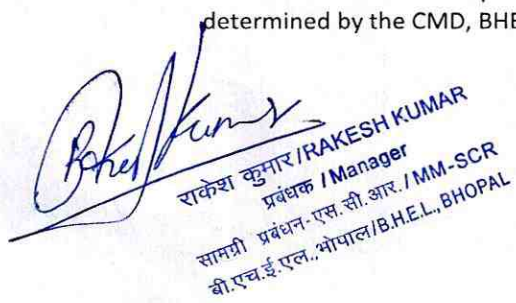 determined by the CMD, BHE
Rakesh Kumar
राकेश कुमार/RAKESH KUMAR
प्रबंधक / Manager
सामग्री प्रबंधन-एस.सी.आर./MM-SCR
बी.एच.ई.एल.,भोपाल/B.H.E.L., BHOPAL